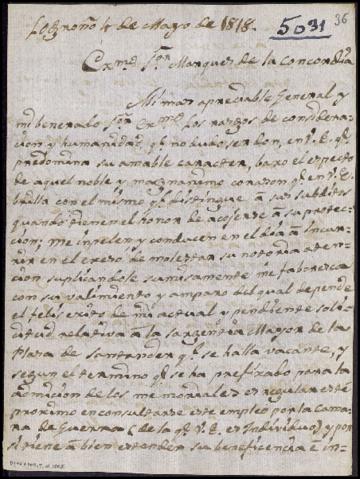 Logroño 4 de Mayo de 1818.
5031
36
Exmô Sôr Marques de la Concordia
Mi mas apreciable General y
mi benerado Sôr Exmô Los rasgos de considera-
cion y humanidad qê no dudo, señor, en V. E. qê
predomina su amable caracter, baxo el respecto
de aquel noble y magnanimo corazon qê en V. E.
brilla con el mismo qê distingue a sus subditos
quando tienen el honor de acojerse a su protec-
cion; me inpelen y conducen en el dia a Incur-
rir en el exceso de molestar su notoria aten-
cion suplicandole sumisamente me faborezca
con su valimiento y amparo del qual depende
el feliz exito de mi actual y pendiente soli-
citud relativa a la sargentia Mayor de la
Plaza de Santander qê se halla vacante, y
segun el termino qê se ha prefixado para la
admision de los memoriales es regular este
proximo en consultarse este empleo por la Cama-
ra de Guerra (de la qê V. E. es Individuo) y por
si tiene a bien estender su beneficencia e in-